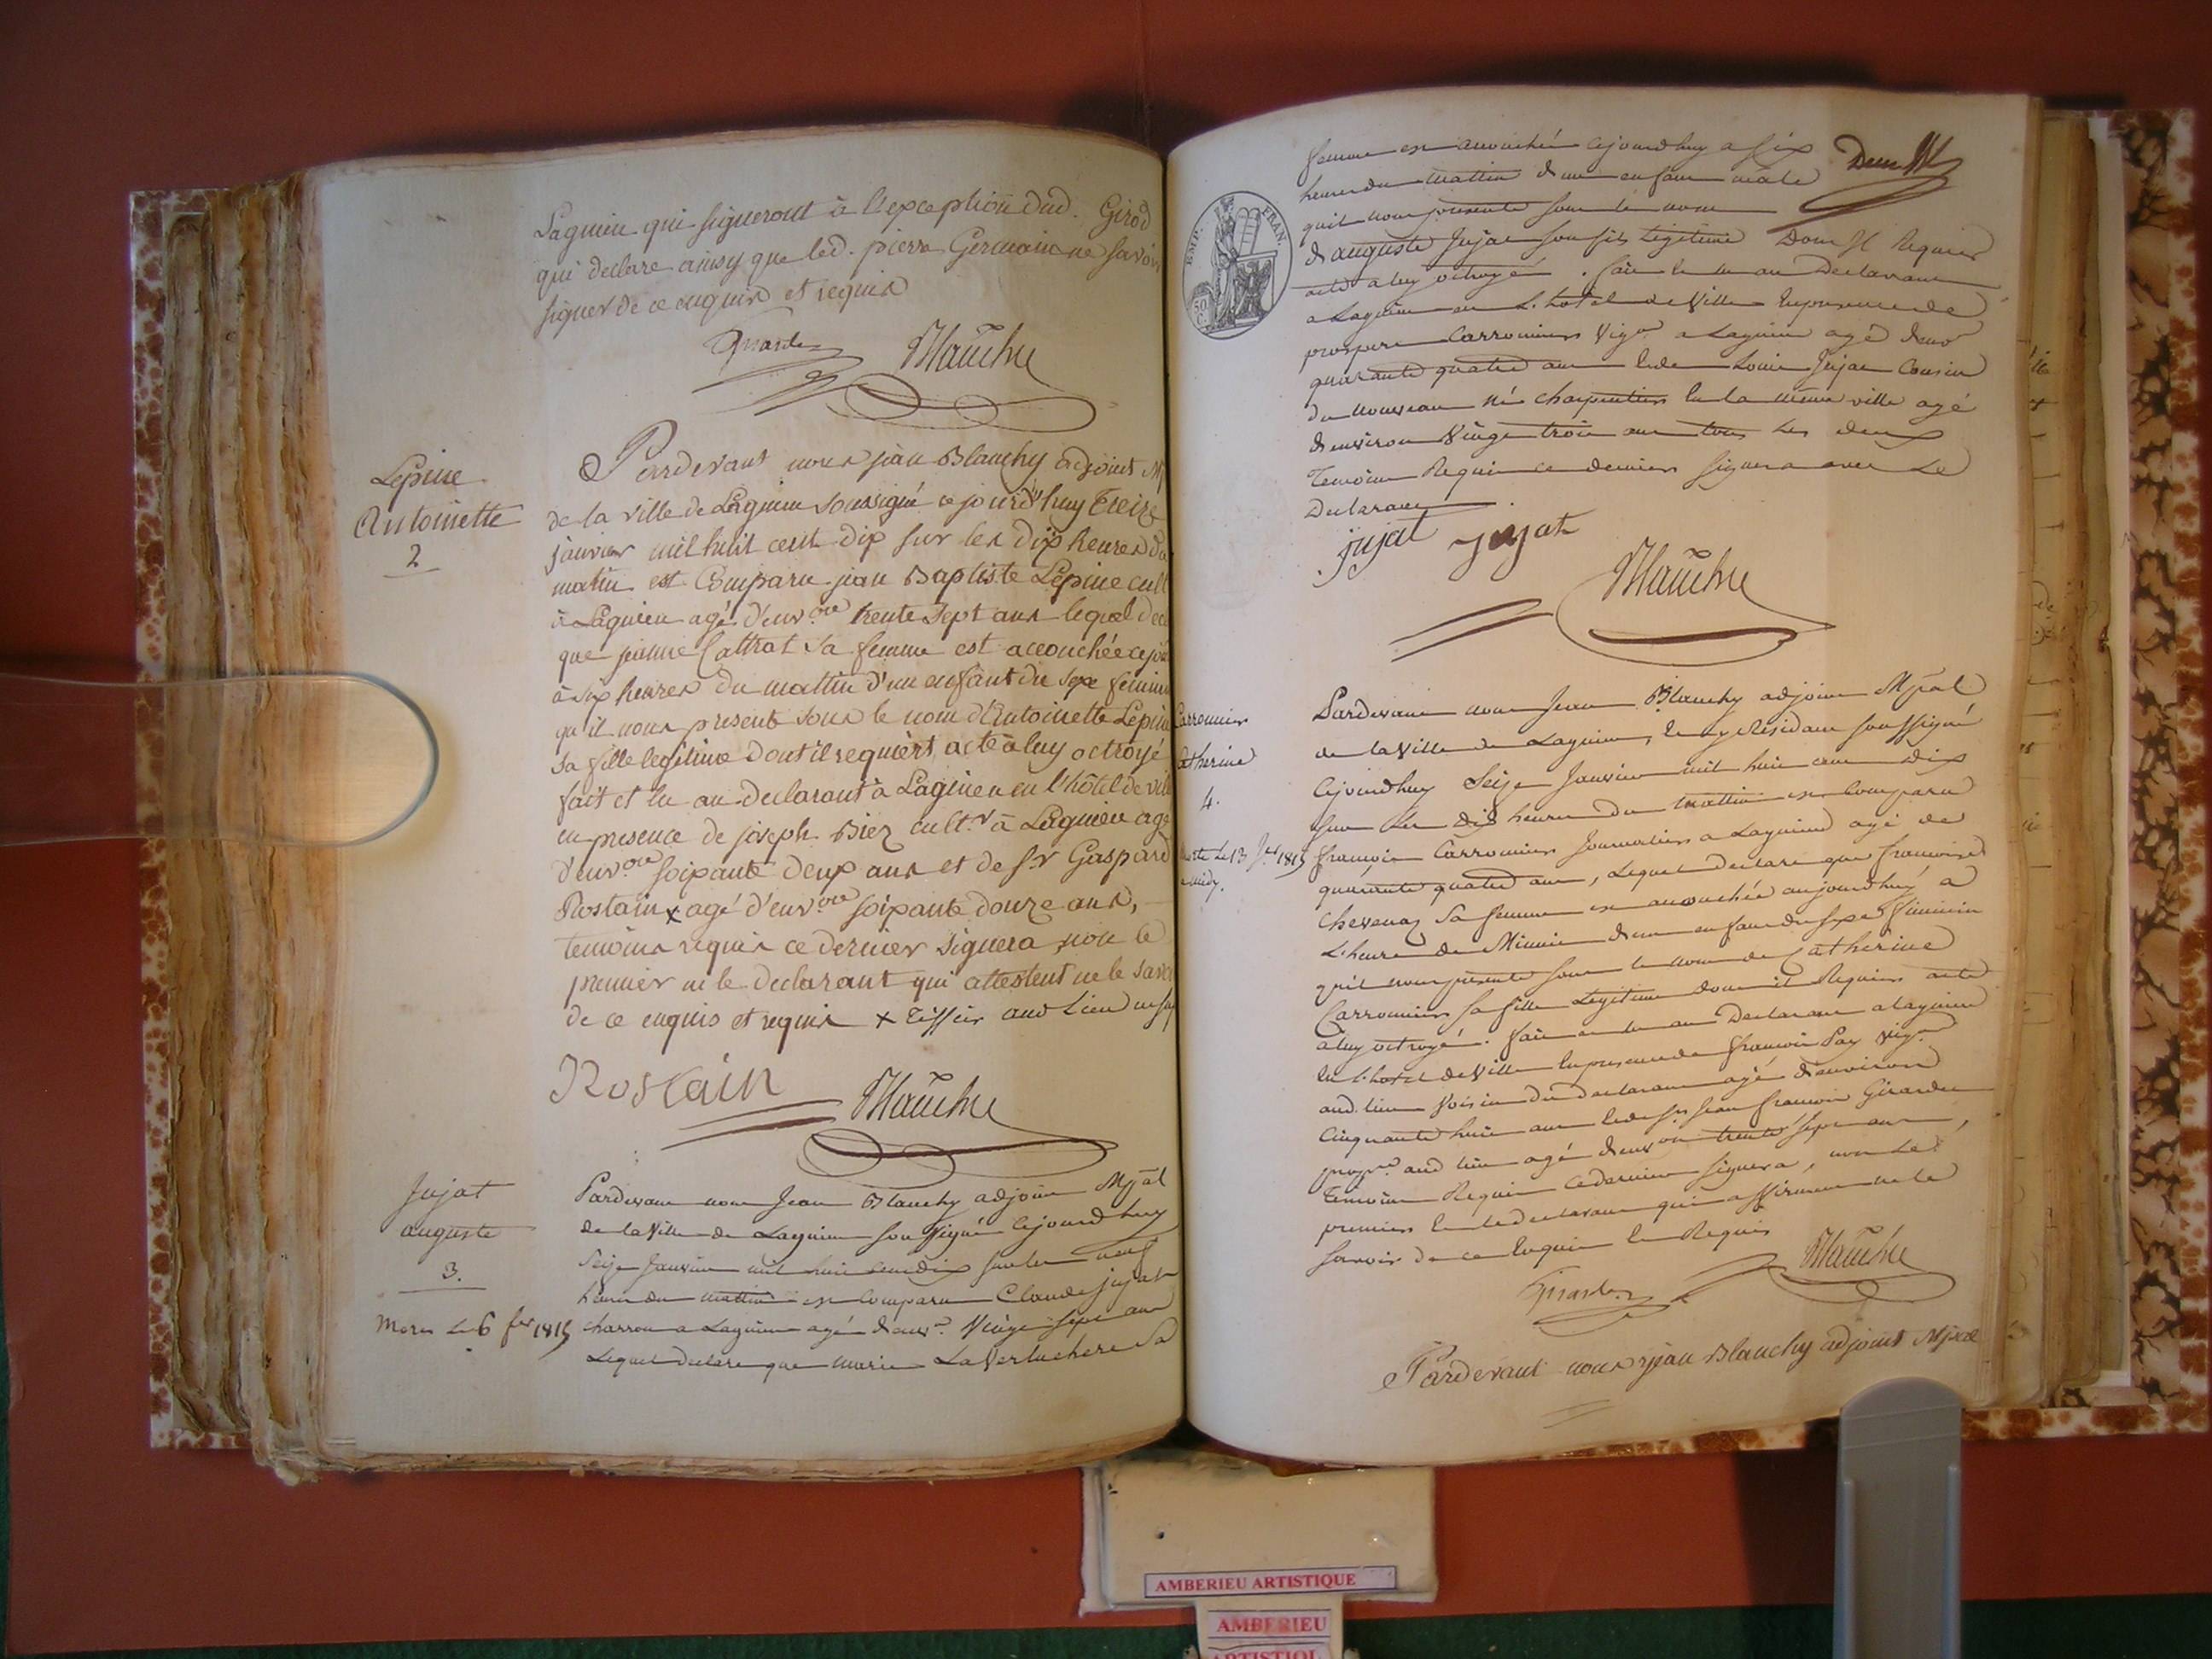 Lagnieu qui signeront à l'exception dud. Girod
qui declare ainsy que led. pierre Germain ne savoir
signer de ce enquis et requis
Girardin Blanchy
Lepine
Antoinette
2
Pardevant nous jean Blanchy adjoint M
de la ville de Lagnieu soussigné ce jourd'huy treize
janvier mil huit cent dix sur les dix heures du
matin est Comparu jean Baptiste Lépine cult
à Lagnieu agé d'env.on trente sept ans lequel decl
que jeanne Cattrat sa femme est accouchée cejo
à six heures du mattin d'un enfant du sexe feminin
qu'il nous presente sous le nom d'Antoinette Lepine
sa fille legitime dont il requiert acte à luy octroyé
fait et lu au declarant à Lagnieu en l'hôtel de ville
en presence de joseph Biez cult.r à Lagnieu agé
d'env.on soixante deux ans et de S.r Gaspard
Rostain x agé d'env.on soixante douze ans,
temoins requis ce dernier signera non le
premier ni le declarant qui attestent ne le savoir
de ce enquis et requis x Tissier aud Lieu
Rostain Blanchy
Jujat
auguste
3.
Mort Le 6 f.er 1815
Pardevant nous Jean Blanchy adjoint Mpal
de la Ville de Lagnieu soussigné cejourdhuy
Seize Janvier mil huit cent dix sur les neuf
heures du mattin est Comparu Claude jujat
charron a Lagnieu agé denv.on Vingt sept ans
Lequel declare que marie LaVerluchere Sa
femme est accouchée cejourdhuy a six
heures du mattin dun enfant mâle
quil nous presente sous le nom
EMP. FRAN.
50 C.
d'auguste Jujat son fils Legitime Dont Il Requier
acte a luy octroyé. fait et lu au Declarant
a Lagnieu en L'hotel de Ville En presence de
prospere Carronnier Vig.on a Lagnieu agé denv.on
quarante quatre ans et de Louis Jujat Cousin
du nouveau né charpentier En la même ville agé
denviron Vingt trois ans tous les deux
Temoins Requis ce dernier signera avec Le
Declarant.
jujat jujat
Blanchy
Carronnier
Catherine
4.
Morte Le 13 1815
a midy.
Pardevant nous Jean Blanchy adjoint Mpal
de la Ville de Lagnieu, En y Residant soussigné
Cejourdhuy Seize Janvier mil huit cent dix
sur Les dix heures du mattin est Comparu
francois Carronnier Journalier a Lagnieu agé de
quarante quatre ans, Lequel declare que francoise
Chevenaz Sa femme est accouchée aujourdhuy a
L'heure de Minuit dun enfant du sexe feminin
quil nous presente sous le nom de Catherine
Carronnier sa fille Legitime dont il Requier acte
a luy octroyé. fait et lu au Declarant a Lagnieu
En L'hotel de Ville En presence de francois Pay Vig.on
aud. lieu Voisin du declarant agé denviron
Cinquante huit ans et de S.r Jean francois Girardin
propr.re aud lieu agé denv.on trente sept ans,
Temoins Requis Ce dernier signera, non Le
premier Et le declarant qui affirment ne le
savoir de ce Enquis Et Requis
Girardin Blanchy
Pardevant nous jean Blanchy adjoint Mpal
AMBERIEU ARTISTIQUE
AMBERIEU
ARTISTIQ